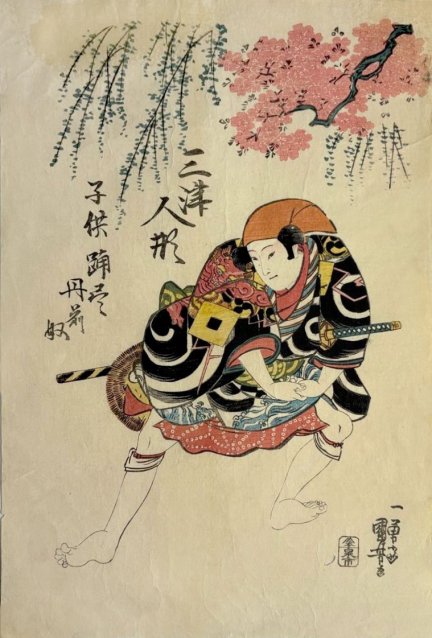 三津
人形
子供踊尽
丹前
奴
一勇斎
国芳画